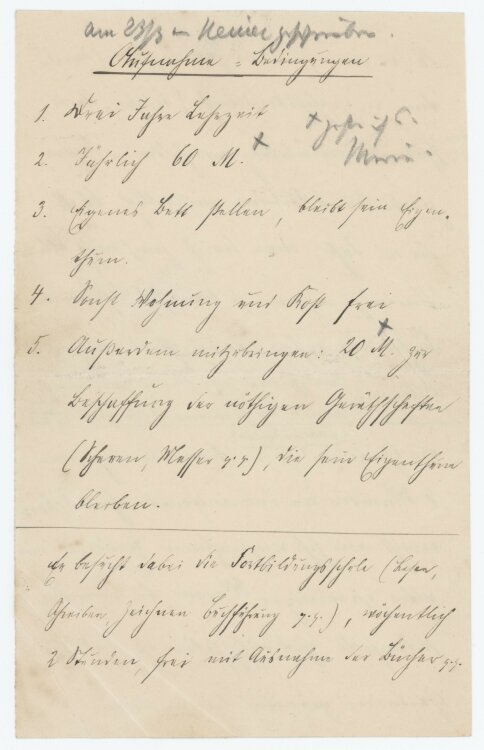 am 23/3 an geschrieben.
Aufnahme-Bedingungen
1. Drei Jahre Lehrzeit
2. Jährlich 60 M. x
x
3. Eigenes Bett stellen, bleibt sein Eigen-
thum.
4. Sonst Wohnung und Kost frei
5. Außerdem mitzubringen: 20 M. x zur
Beschaffung der nöthigen Geräthschaften
(Scheren, Messer p.p), die sein Eigenthum
bleiben.
Er besucht dabei die Fortbildungsschule (Lesen,
Schreiben, Zeichnen Buchführung p.p.), wöchentlich
2 Stunden, frei mit Ausnahme der Bücher p.p.